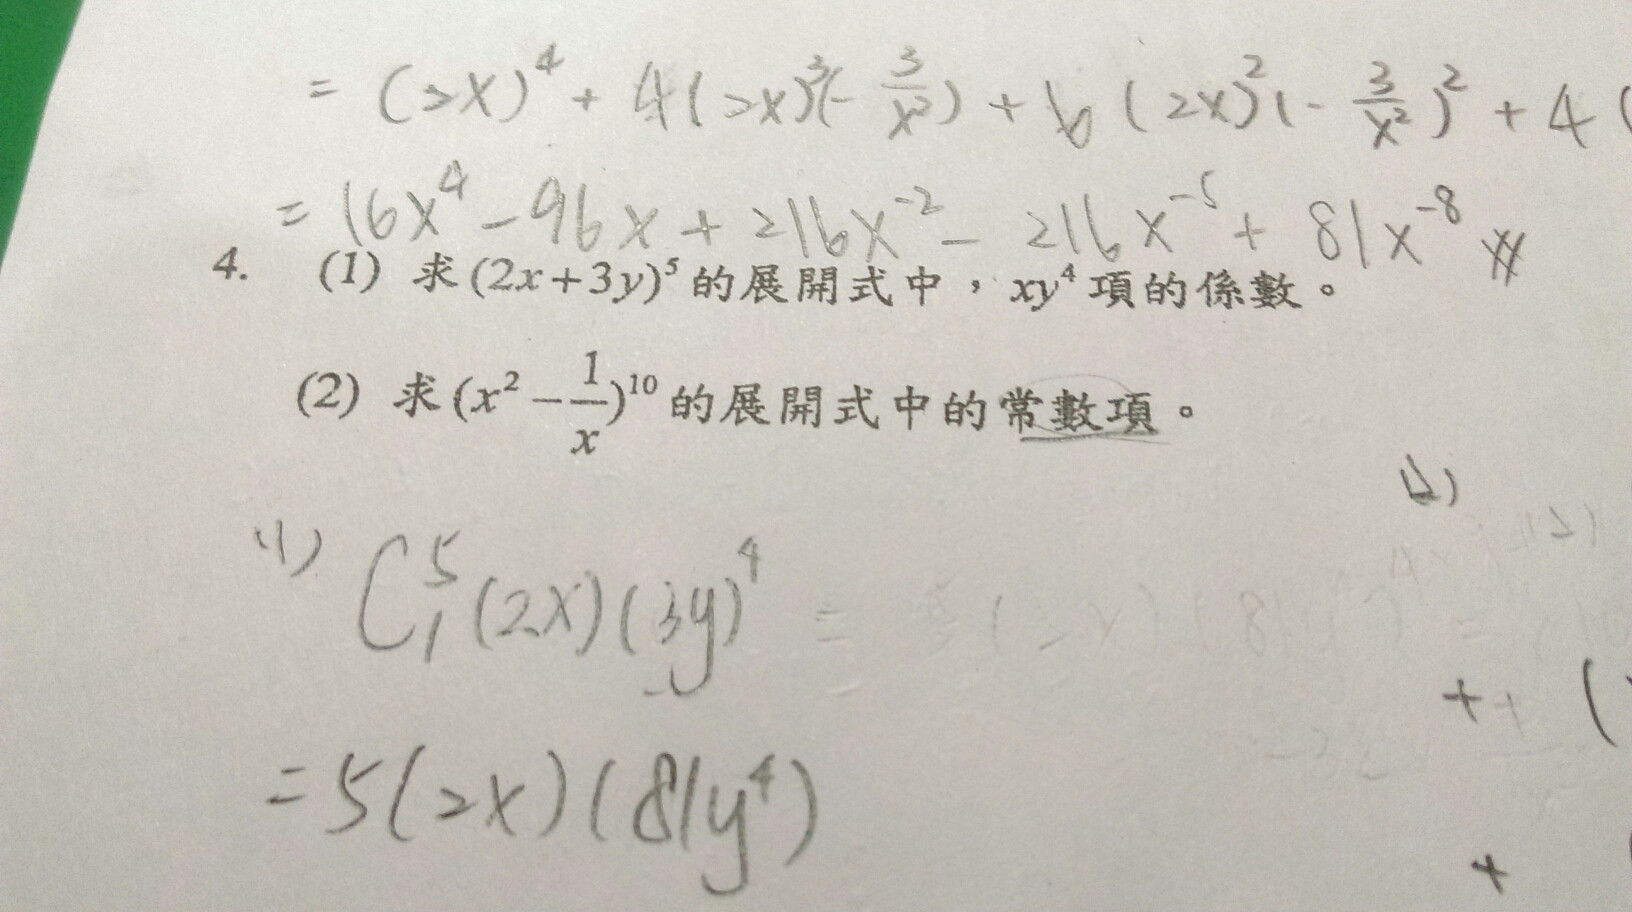 = (2x)⁴ + 4(2x)³(-3/x²) + 6(2x)²(-3/x²)² + 4(
= 16x⁴ - 96x + 216x⁻² - 216x⁻⁵ + 81x⁻⁸
4. (1) 求(2x+3y)⁵的展開式中，xy⁴項的係數。
(2) 求(x²-1/x)¹⁰的展開式中的常數項。
(1) C⁵₁(2x)(3y)⁴
(2)
= 5(2x)(81y⁴)
+ (
+